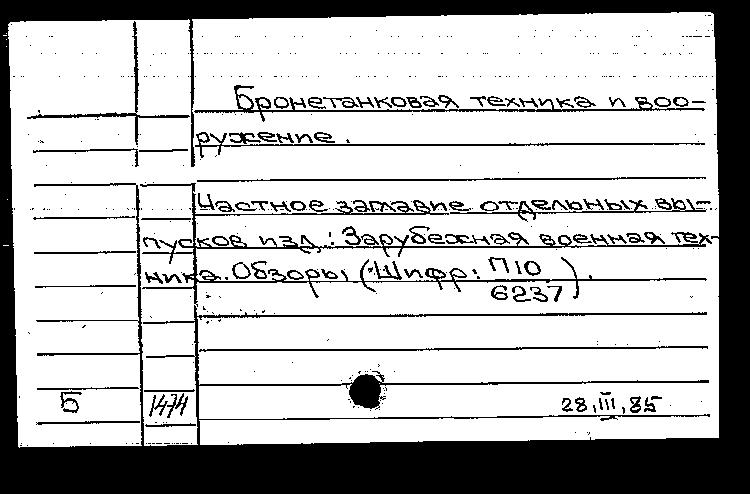 Бронетанковая техника и воо-
ружение.
Частное заглавие отдельных вы-
пусков изд.: Зарубежная военная тех-
ника. Обзоры (Шифр: П10
6237).
Б 1474 28.III.85